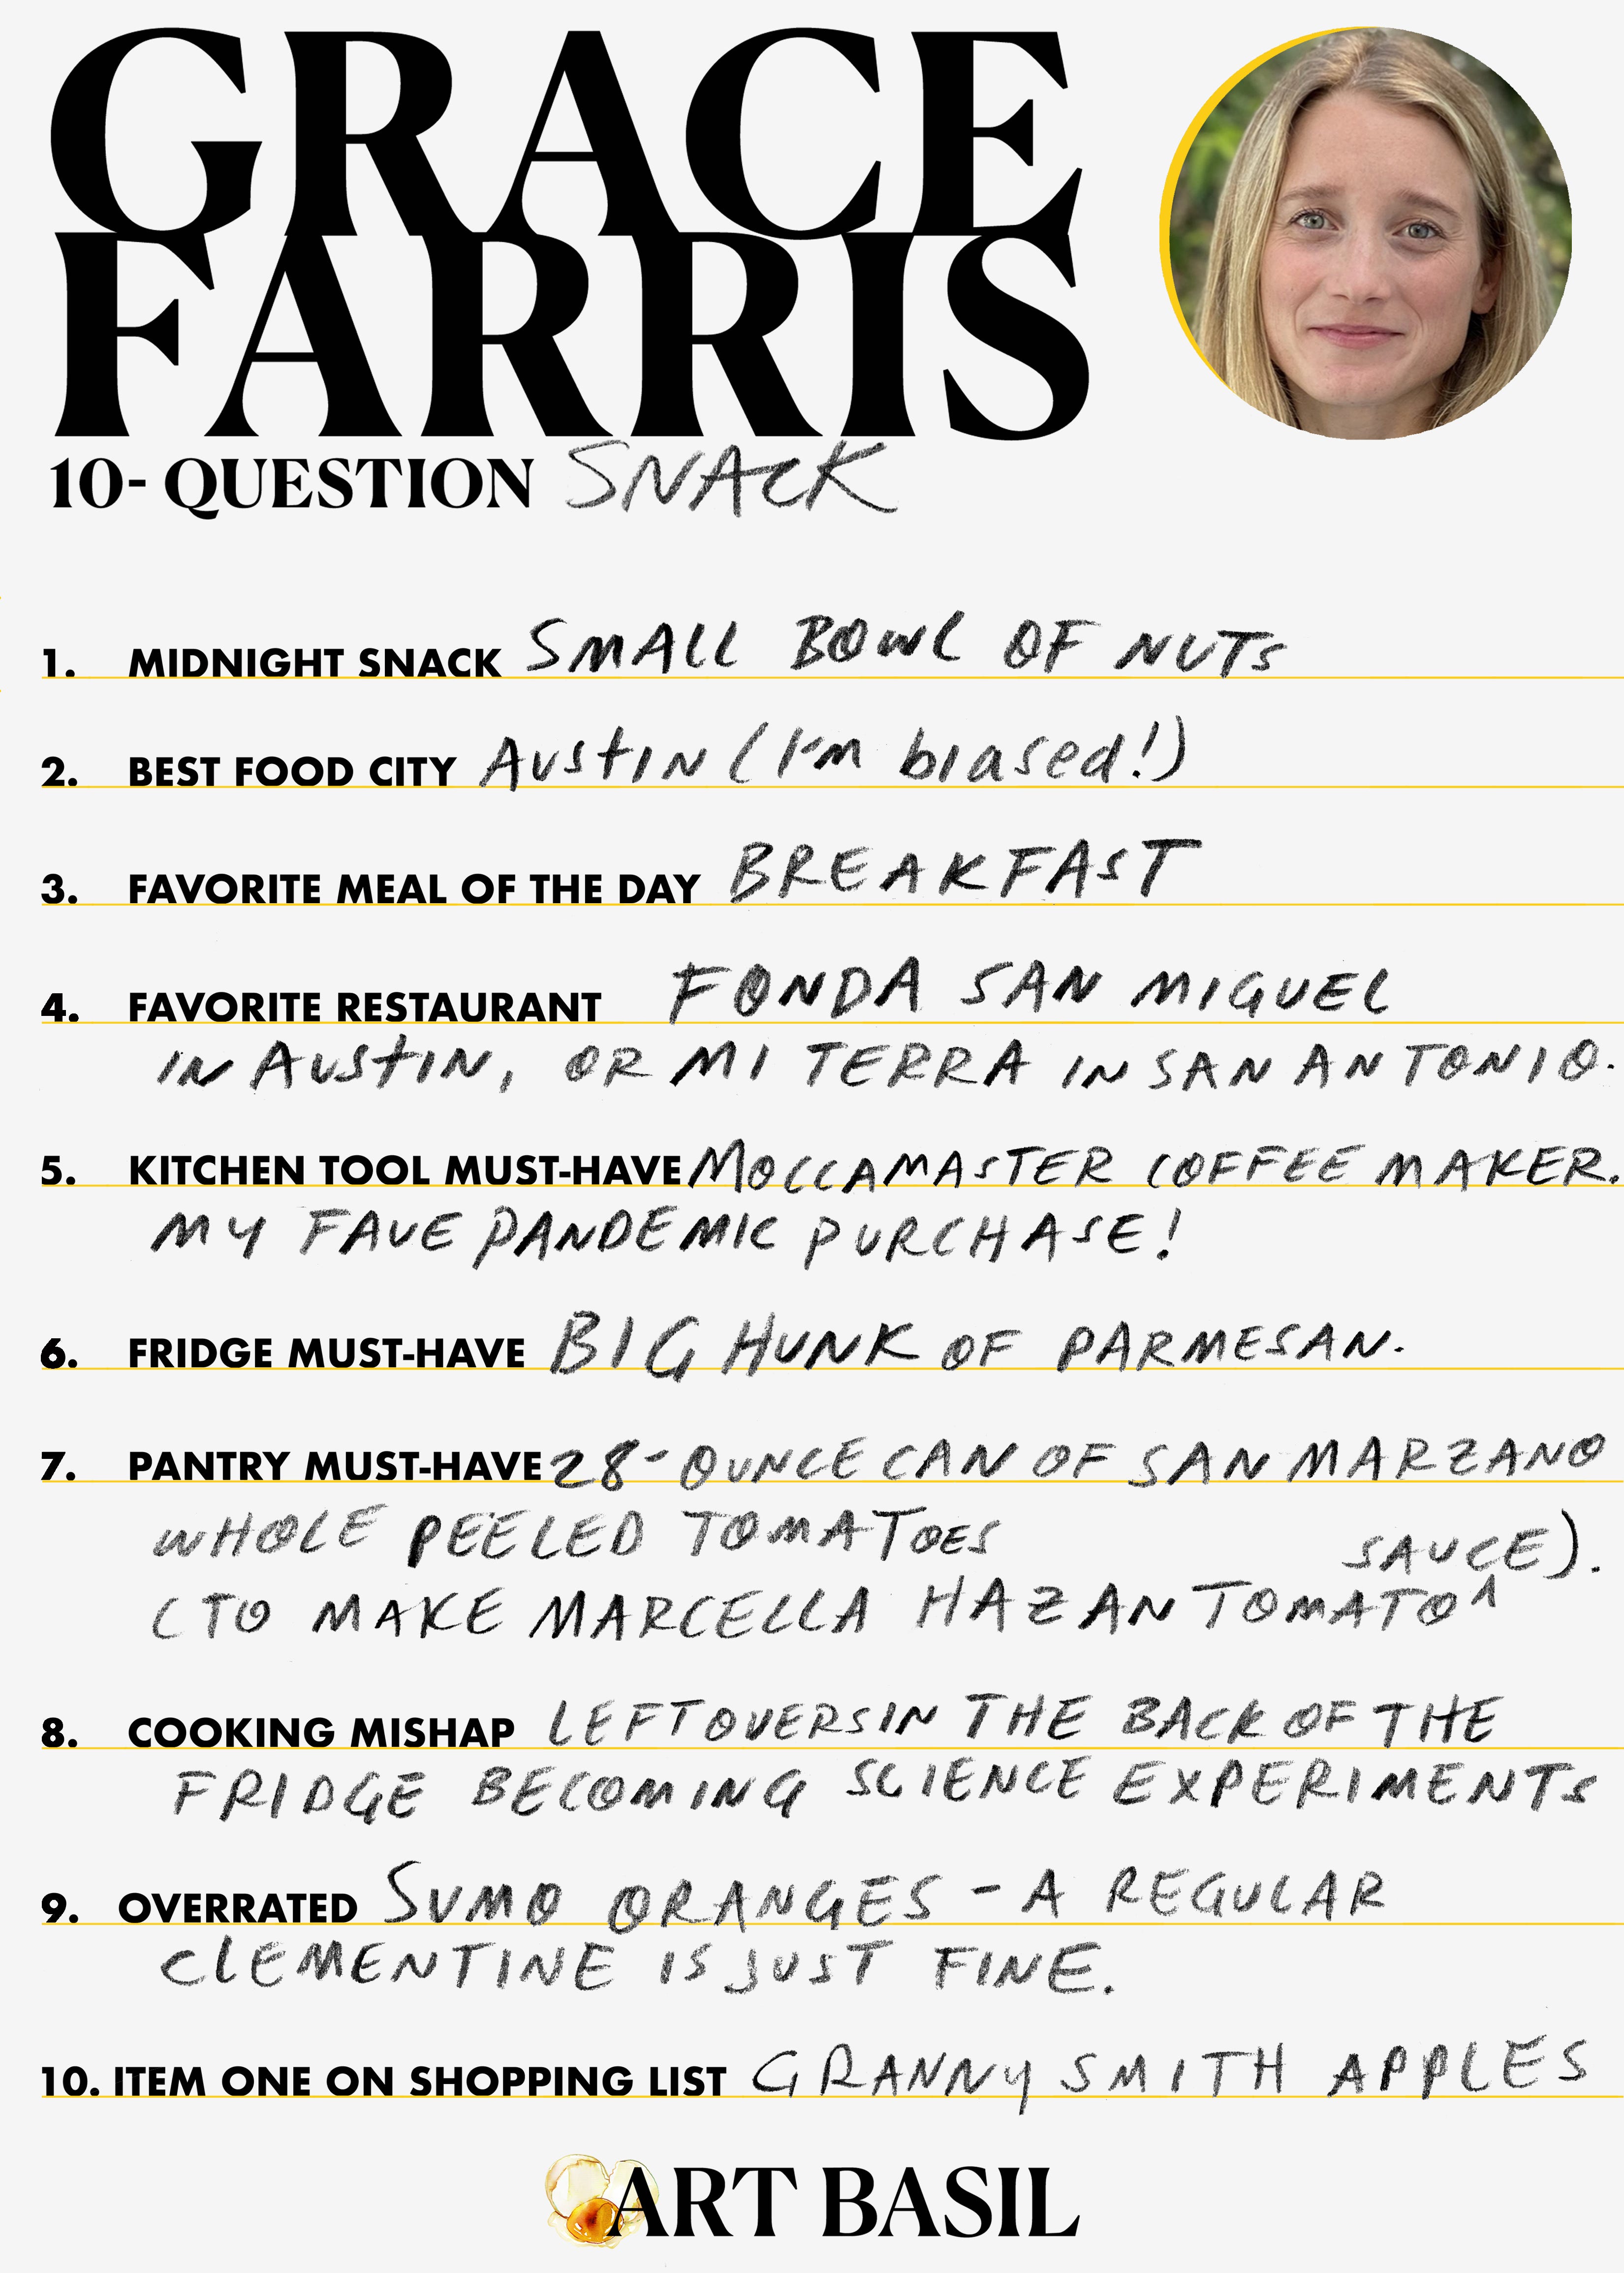 GRACE
FARRIS
10- QUESTION SNACK
1. MIDNIGHT SNACK SMALL BOWL OF NUTS
2. BEST FOOD CITY AUStIN (I'm biased!)
3. FAVORITE MEAL OF THE DAY BREAKFAST
4. FAVORITE RESTAURANT FONDA SAN MIGUEL
IN AUStIN, OR MI TERRA IN SAN ANTONIO.
5. KITCHEN TOOL MUST-HAVE MOCCAMASTER COFFEE MAKER.
MY FAVE PANDEMIC PURCHASE!
6. FRIDGE MUST-HAVE BIG HUNK OF PARMESAN.
7. PANTRY MUST-HAVE 28-OUNCE CAN OF SAN MARZANO
WHOLE PEELED TOMATOES
(TO MAKE MARCELLA HAZAN TOMATO ^ SAUCE).
8. COOKING MISHAP LEFTOVERS IN THE BACK OF THE
FRIDGE BECOMING SCIENCE EXPERIMENTS
9. OVERRATED SUMO ORANGES - A REGULAR
ClEMENTINE IS JUST FINE.
10. ITEM ONE ON SHOPPING LIST GRANNY SMITH APPLES
ART BASIL